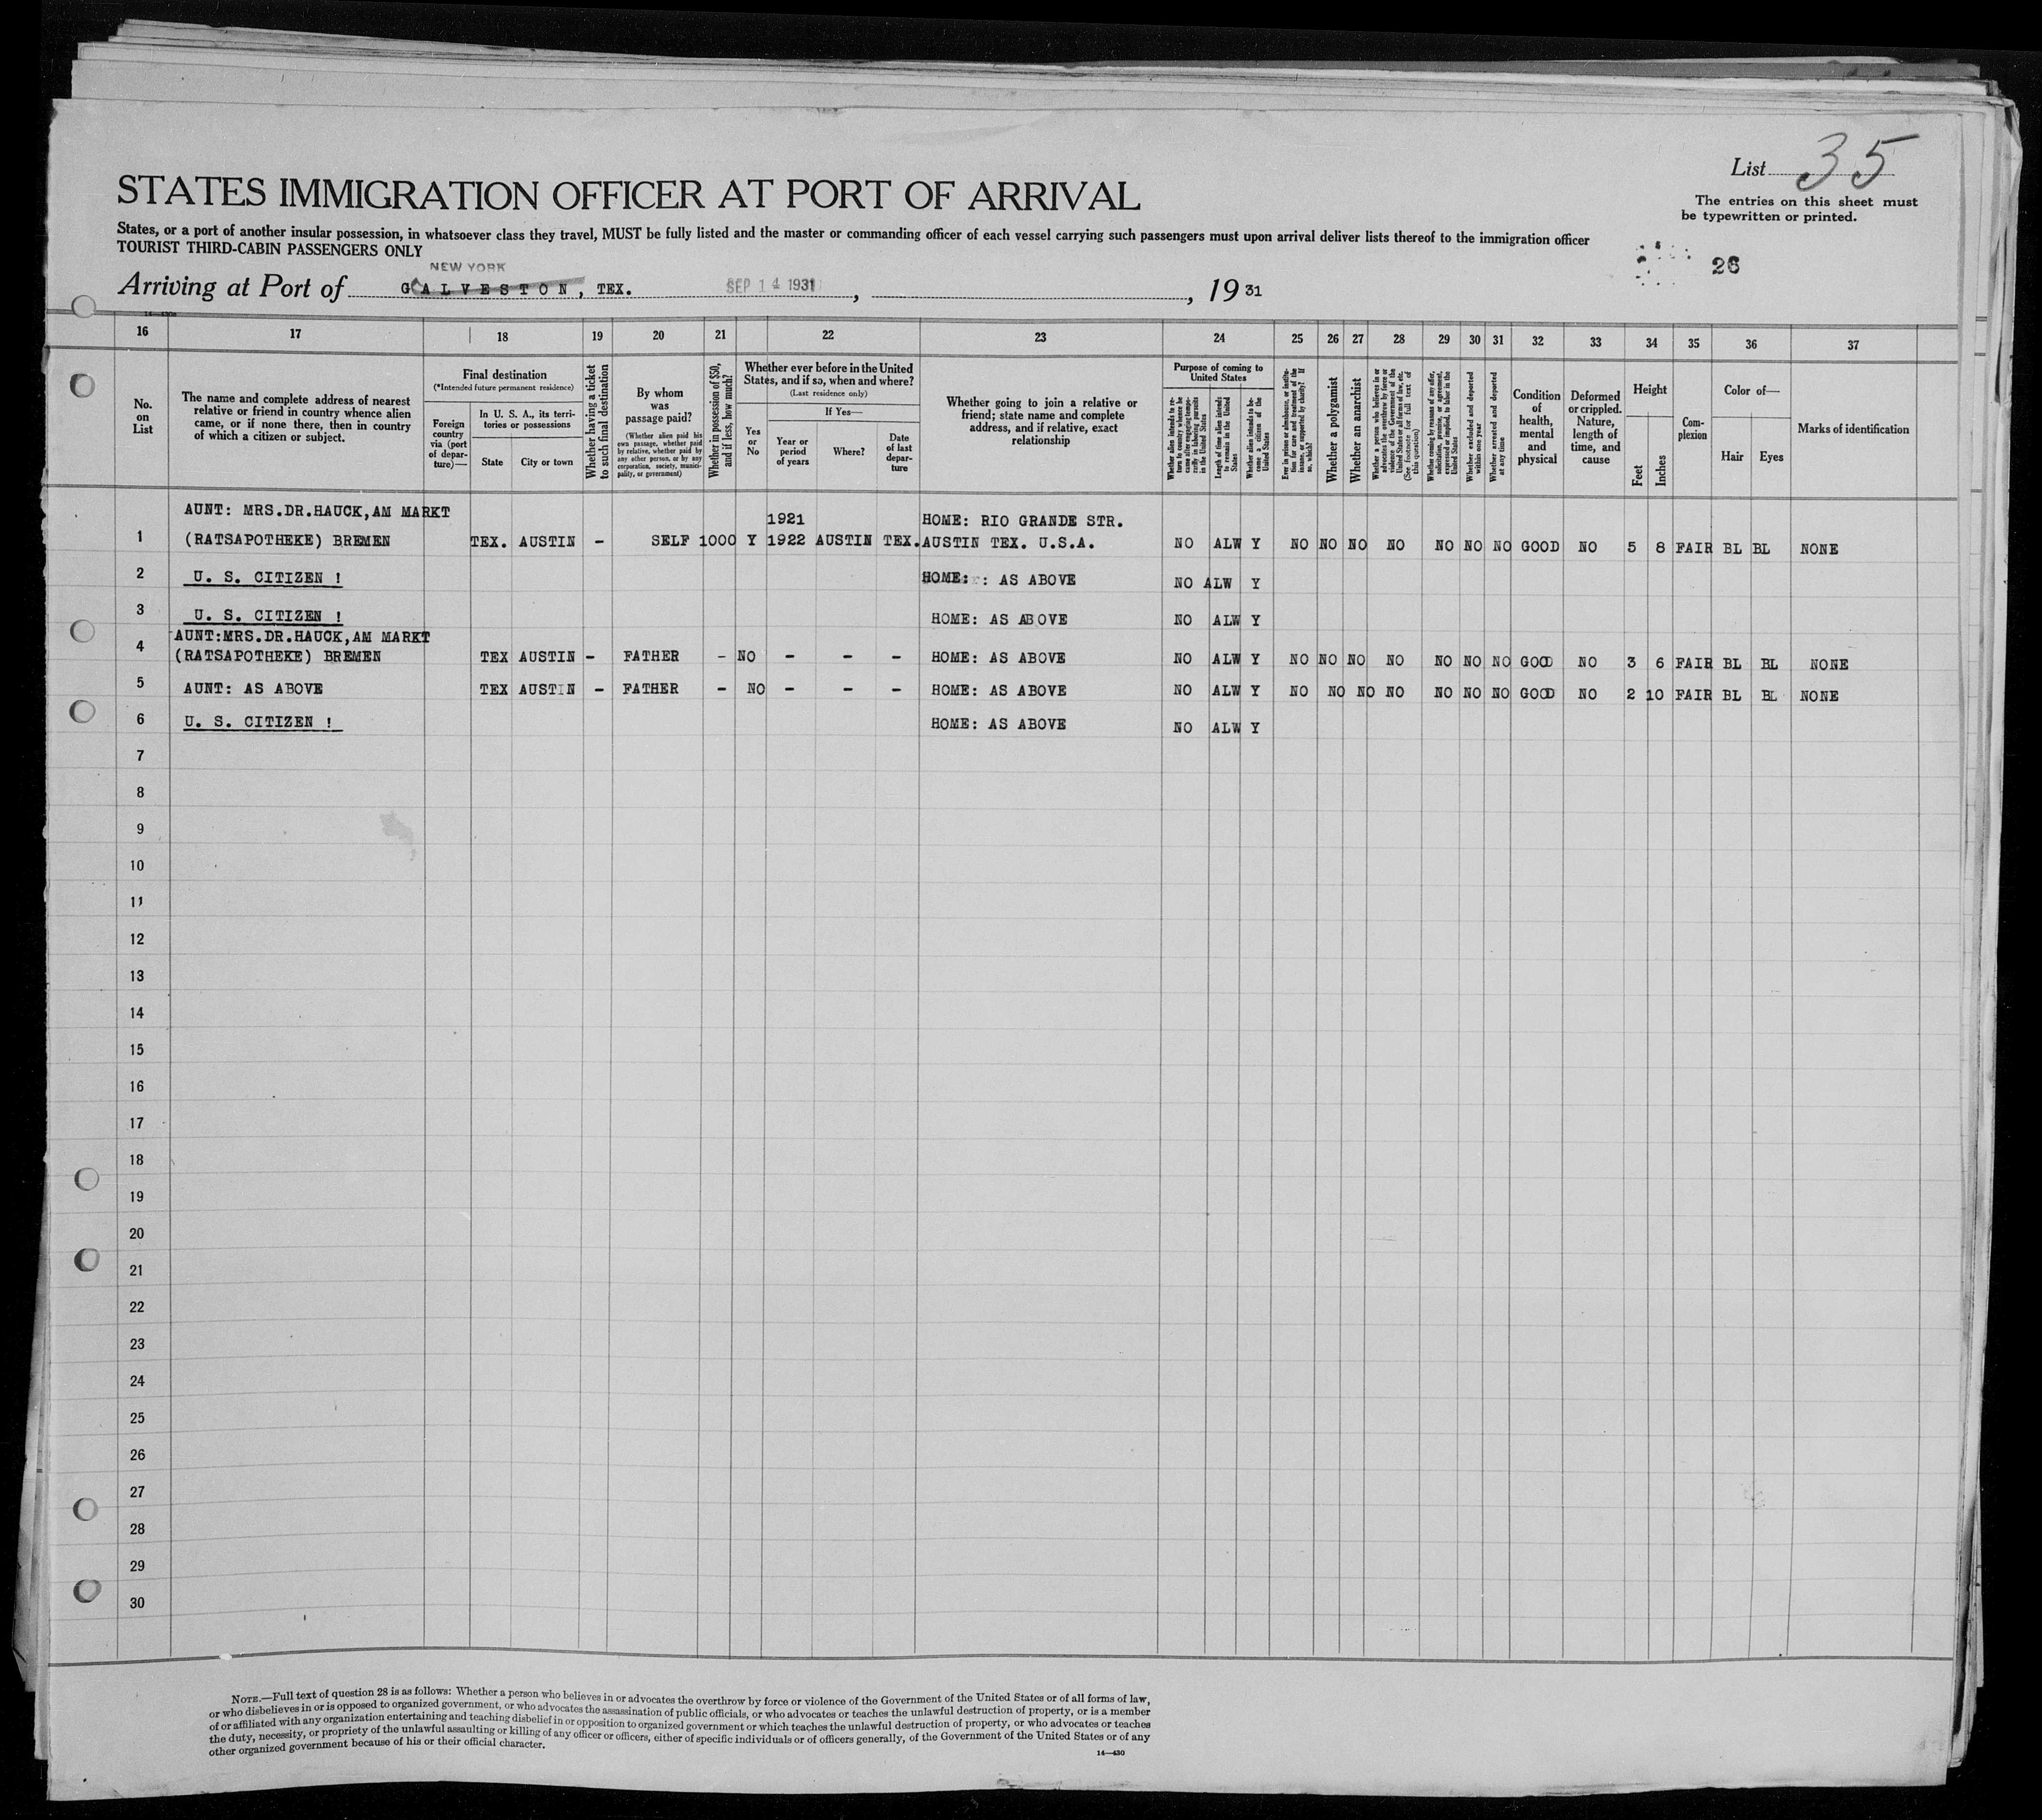 List 35
STATES IMMIGRATION OFFICER AT PORT OF ARRIVAL
The entries on this sheet must
be typewritten or printed.
States, or a port of another insular possession, in whatsoever class they travel, MUST be fully listed and the master or commanding officer of each vessel carrying such passengers must upon arrival deliver lists thereof to the immigration officer
TOURIST THIRD-CABIN PASSENGERS ONLY
26
NEW YORK
Arriving at Port of GALVESTON, TEX. SEP 14 1931, , 19 31
16 17 18 19 20 21 22 23 24 25 26 27 28 29 30 31 32 33 34 35 36 37
No.
on
List
The name and complete address of nearest
relative or friend in country whence alien
came, or if none there, then in country
of which a citizen or subject.
Final destination
(*Intended future permanent residence)
Foreign
country
via (port
of depar-
ture)—
In U. S. A., its terri-
tories or possessions
State
City or town
Whether having a ticket
to such final destination
By whom
was
passage paid?
(Whether alien paid his
own passage, whether paid
by relative, whether paid by
any other person, or by any
corporation, society, munici-
pality, or government)
Whether in possession of $50,
and if less, how much?
Whether ever before in the United
States, and if so, when and where?
(Last residence only)
Yes
or
No
If Yes—
Year or
period
of years
Where?
Date
of last
depar-
ture
Whether going to join a relative or
friend; state name and complete
address, and if relative, exact
relationship
Purpose of coming to
United States
Whether alien intends to re-
turn to country whence he
came after engaging tempo-
rarily in laboring pursuits
in the United States
Length of time alien intends
to remain in the United
States
Whether alien intends to be-
come a citizen of the
United States
Ever in prison or almshouse, or institu-
tion for care and treatment of the
insane, or supported by charity? If
so, which?
Whether a polygamist
Whether an anarchist
Whether a person who believes in or
advocates the overthrow by force or
violence of the Government of the
United States or all forms of law, etc.
(See footnote for full text of
this question)
Whether coming by reasons of any offer,
solicitation, promise, or agreement,
expressed or implied, to labor in the
United States
Whether excluded and deported
within one year
Whether arrested and deported
at any time
Condition
of
health,
mental
and
physical
Deformed
or crippled.
Nature,
length of
time, and
cause
Height
Feet
Inches
Com-
plexion
Color of—
Hair
Eyes
Marks of identification
AUNT: MRS.DR.HAUCK,AM MARKT 1921 HOME: RIO GRANDE STR.
1 (RATSAPOTHEKE) BREMEN TEX. AUSTIN - SELF 1000 Y 1922 AUSTIN TEX. AUSTIN TEX. U.S.A. NO ALW Y NO NO NO NO NO NO NO GOOD NO 5 8 FAIR BL BL NONE
2 U. S. CITIZEN ! HOME: : AS ABOVE NO ALW Y
3 U. S. CITIZEN ! HOME: AS ABOVE NO ALW Y
AUNT:MRS.DR.HAUCK,AM MARKT
4 (RATSAPOTHEKE) BREMEN TEX AUSTIN - FATHER - NO - - - HOME: AS ABOVE NO ALW Y NO NO NO NO NO NO NO GOOD NO 3 6 FAIR BL BL NONE
5 AUNT: AS ABOVE TEX AUSTIN - FATHER - NO - - - HOME: AS ABOVE NO ALW Y NO NO NO NO NO NO NO GOOD NO 2 10 FAIR BL BL NONE
6 U. S. CITIZEN ! HOME: AS ABOVE NO ALW Y
7
8
9
10
11
12
13
14
15
16
17
18
19
20
21
22
23
24
25
26
27
28
29
30
NOTE.—Full text of question 28 is as follows: Whether a person who believes in or advocates the overthrow by force or violence of the Government of the United States or of all forms of law,
or who disbelieves in or is opposed to organized government, or who advocates the assassination of public officials, or who advocates or teaches the unlawful destruction of property, or is a member
of or affiliated with any organization entertaining and teaching disbelief in or opposition to organized government or which teaches the unlawful destruction of property, or who advocates or teaches
the duty, necessity, or propriety of the unlawful assaulting or killing of any officer or officers, either of specific individuals or of officers generally, of the Government of the United States or of any
other organized government because of his or their official character.
14—430